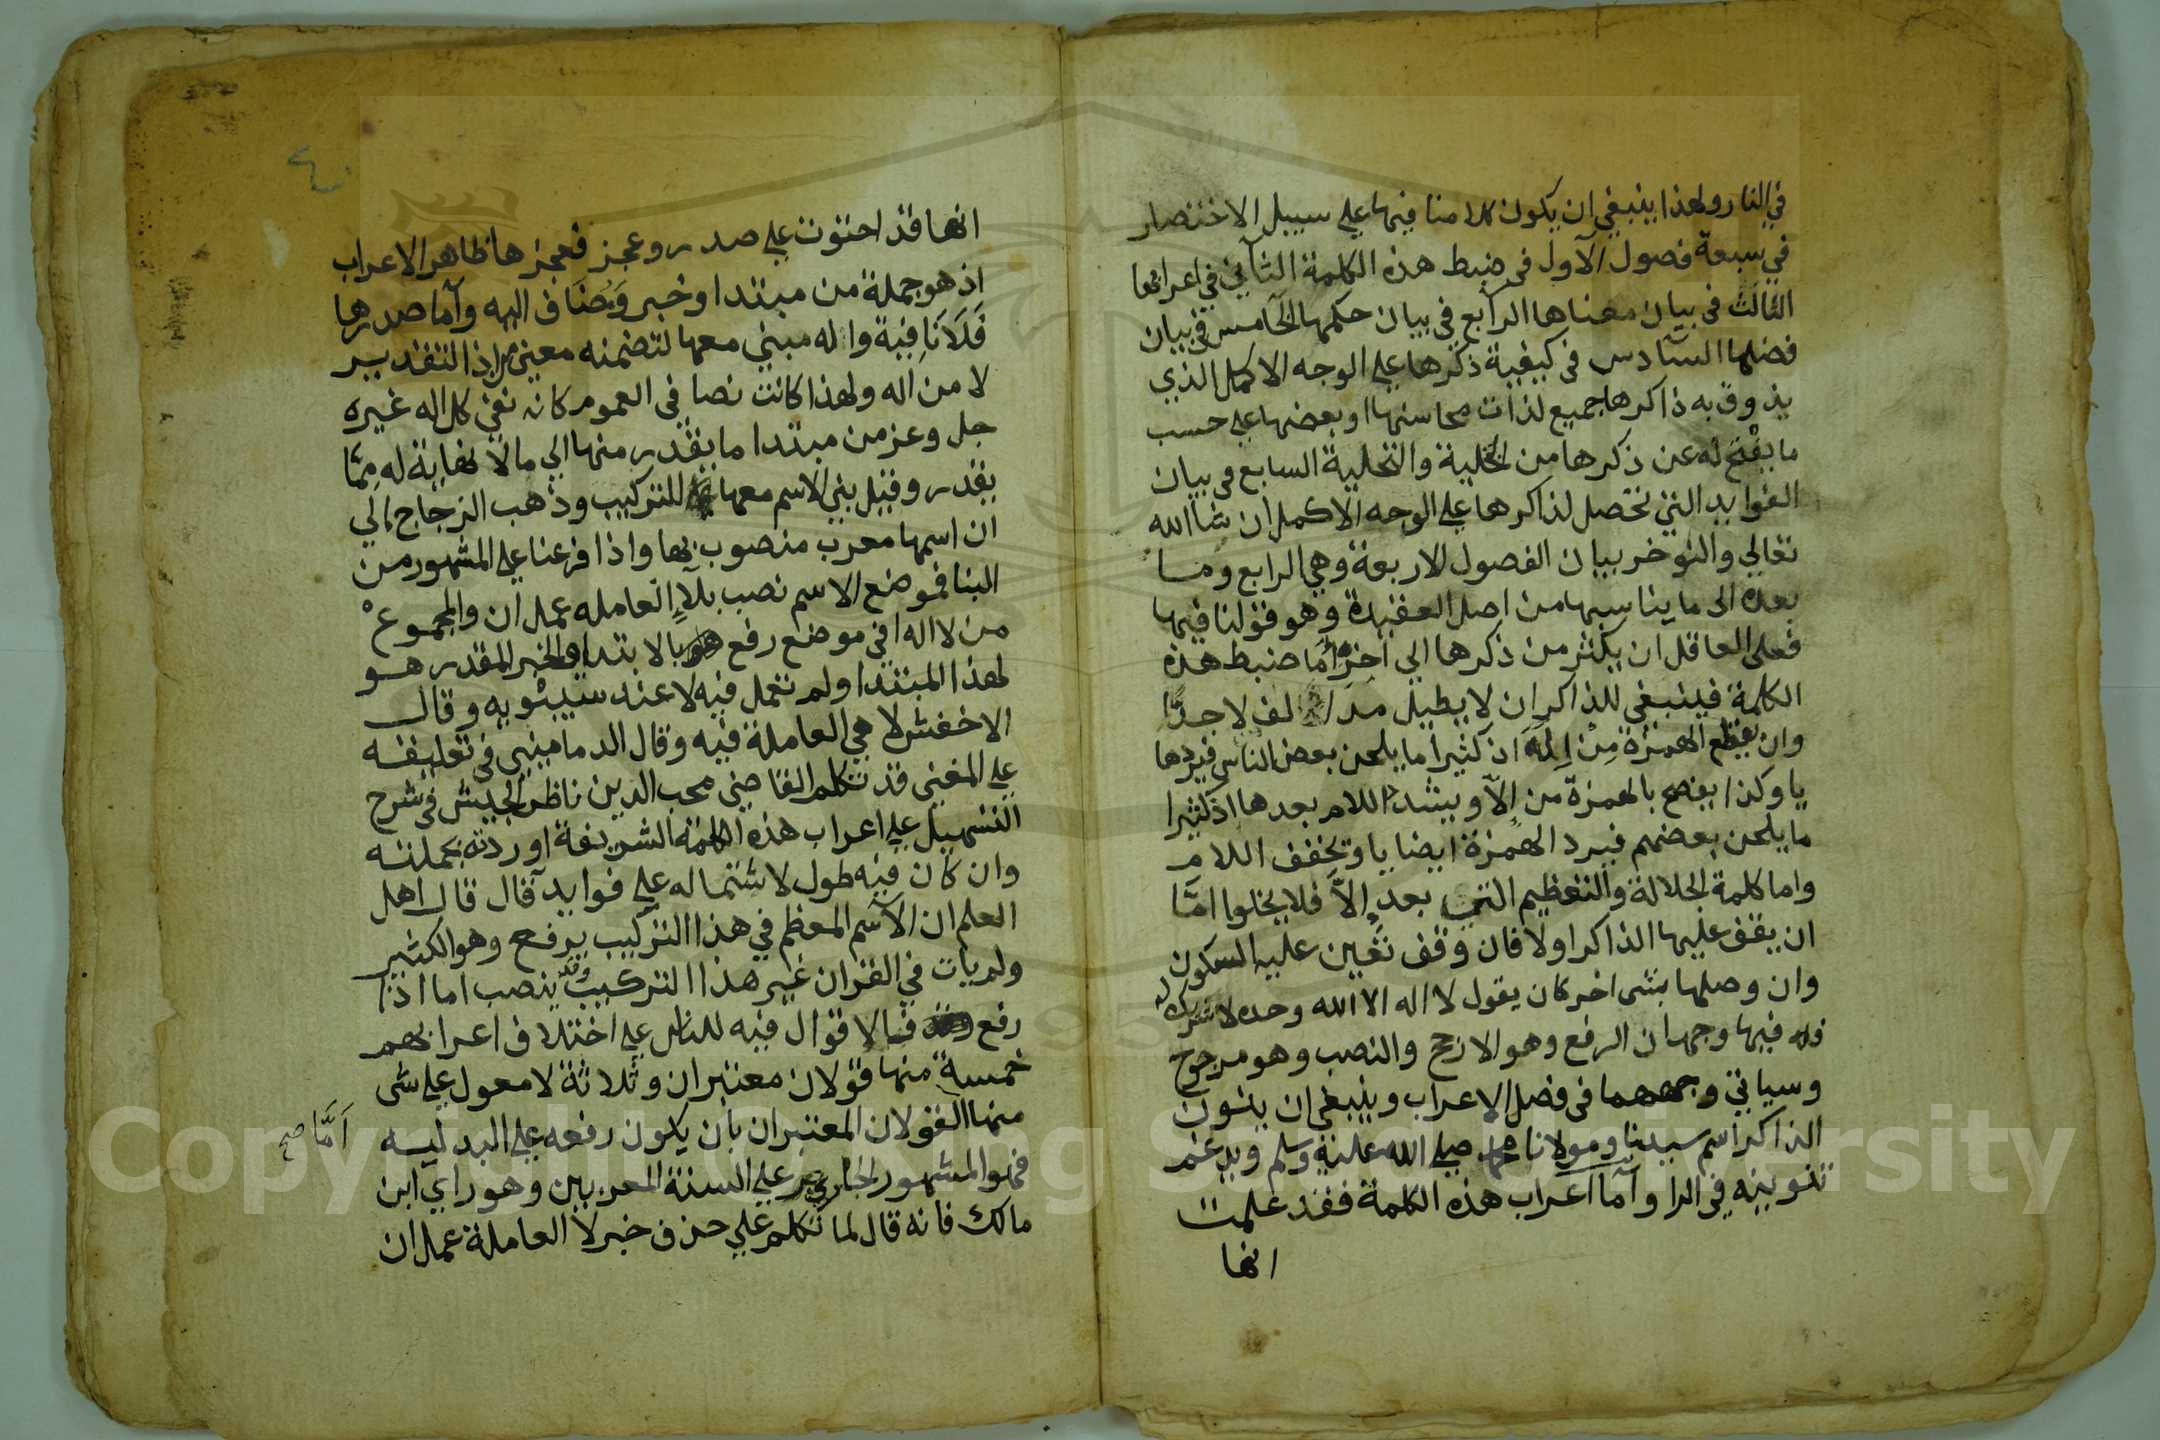 في النار ولهذا ينبغي ان يكون كلامنا فيها علي سبيل الاختصار
في سبعة فصول الاول في ضبط هذه الكلمة الثاني في اعرابها
الثالث في بيان معناها الرابع في بيان حكمها الخامس في بيان
فضلها السادس في كيفية ذكرها علي الوجه الاكمل الذي
يذوق به ذاكرها جميع لذات محاسنها او بعضها علي حسب
ما يفتح له عن ذكرها من التخلية والتحلية السابع في بيان
الفوايد التي تحصل لذاكرها علي الوجه الاكمل ان شا الله
تعالي والنوخر بيان الفصول الاربعة وهي الرابع وما
بعده الى ما يناسبها من اصل العقيدة وهو قولنا فيها
فعلى العاقل ان يكثر من ذكرها الي اخره أما ضبط هذه
الكلمة فينبغي للذاكر ان لا يطيل مد الف لا جدًّا
وان يقطع الهمزة مِنْ إِلَهَ اذ كثيرا ما يلحن بعض الناس فيردها
يا وكذا يفصح بالهمزة من إلاّ ويشدد اللام بعدها اذ كثيرا
ما يلحن بعضهم فيرد الهمزة ايضا يا ويخفف اللام
واما كلمة الجلالة والتعظيم التي بعد إلاَّ فلا يخلوا امّا
ان يقف عليها الذاكر اولا فان وقف تعين عليه السكون
وان وصلها بشي اخر كان يقول لا اله الا الله وحده لا شريك له
فله فيها وجهان الرفع وهو الارجح والنصب وهو مرجوح
وسياتي وجههما في فصل الاعراب وينبغي ان ينون
الذاكر اسم سيدنا ومولانا محمد صلي الله عليه وسلم ويدغم
تنوينه في الرا وأما اعراب هذه الكلمة فقد علمت
انها
٤
انها قد احتوت علي صدر وعجز فعجزها ظاهر الاعراب
اذ هو جملة من مبتدا وخبر ومضاف اليه وأما صدرها
فَلَا نافية واله مبني معها لتضمنه معني من اذ التقدير
لا من اله ولهذا كانت نصا في العموم كانه نفي كل اله غيره
جل وعز من مبتدا ما يقدر منها الي مالا نهاية له مِمّا
يقدر وقيل بني الاسم معها للتركيب وذهب الزجاج الي
ان اسمها معرب منصوب بها واذا فرعنا علي المشهور من
البنا فموضع الاسم نصب بلا العامله عمل ان والمجموع
من لا اله في موضع رفع بالابتدا والخبر المقدر هو
لهذا المبتدا ولم تعمل فيه لا عند سيبويه وقال
الاخفش لا هي العاملة فيه وقال الدماميني في تعليقه
علي المغني قد تكلم القاضي محب الدين ناظر الجيش في شرح
التسهيل علي اعراب هذه الكلمة الشريفة اوردته بجملته
وان كان فيه طول لاشتماله علي فوايد قال قال اهل
العلم ان الاسم المعظم في هذا التركيب يرفع وهو الكثير
ولم يات في القران غير هذا التركيب وقد ينصب اما اذا
رفع فالاقوال فيه للناس علي اختلاف اعرابهم
خمسة منها قولان معتبران وثلاثة لا معول علي شي
منها القولان المعتبران بان يكون رفعه علي البدليه
أمَّا صح
فهو المشهور الجاري علي السنة المعربين وهو راي ابن
مالك فانه قال لما تكلم علي حذف خبر لا العاملة عمل ان
Copyright © King Saud University